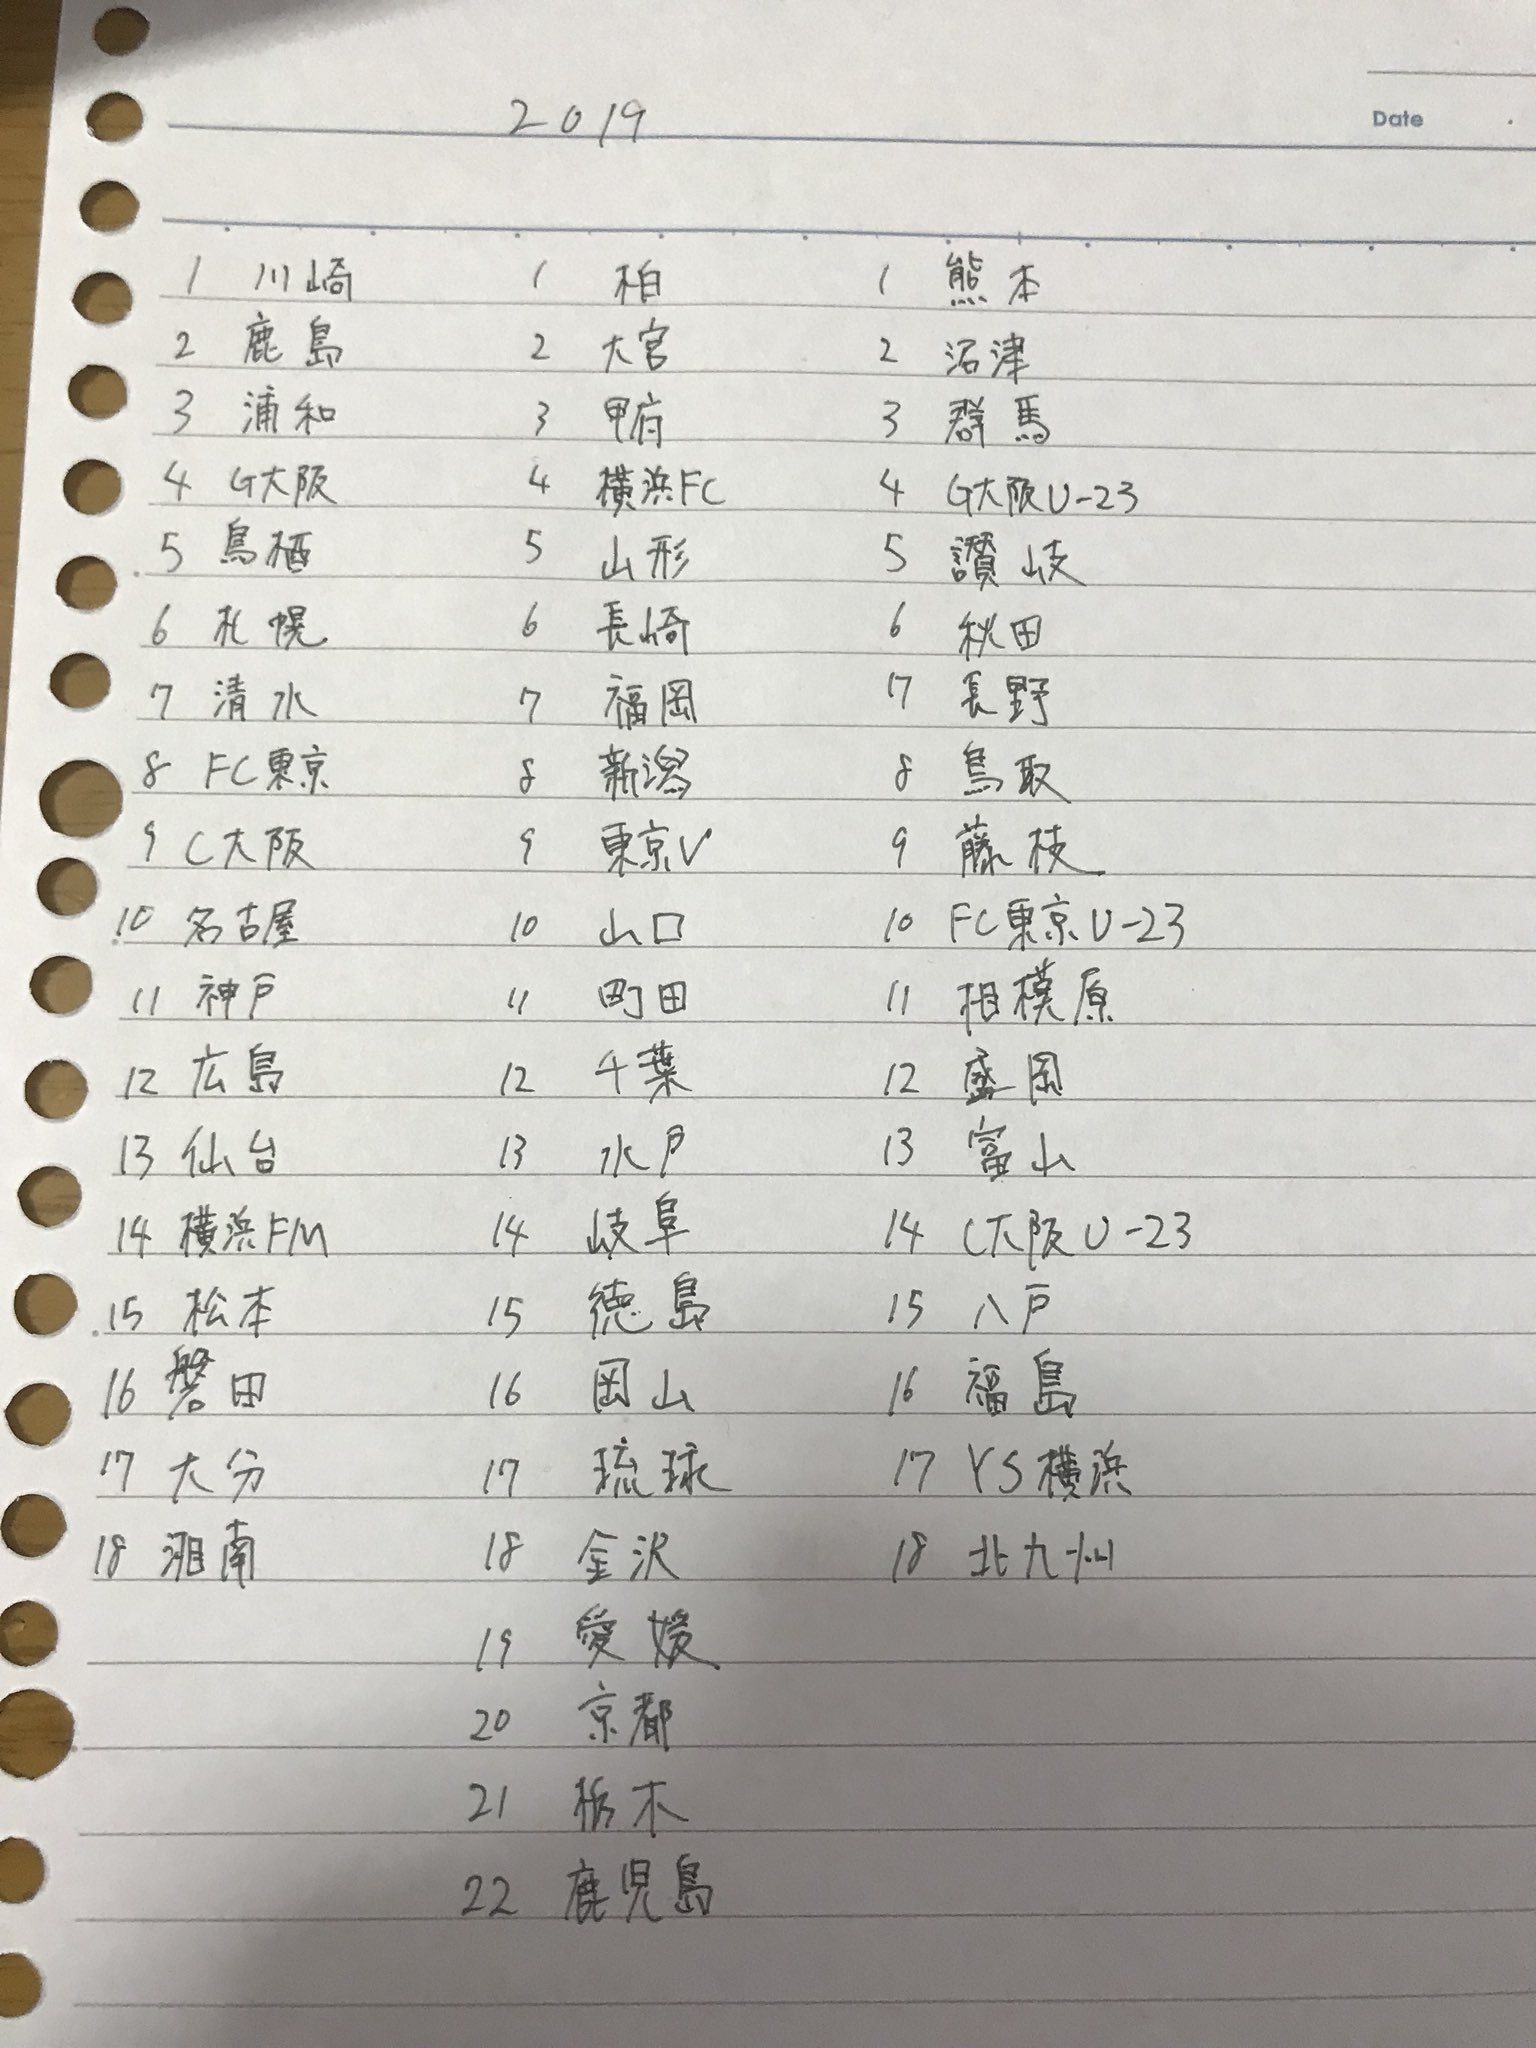 2019
Date
1 川崎 1 柏 1 熊本
2 鹿島 2 大宮 2 沼津
3 浦和 3 甲府 3 群馬
4 G大阪 4 横浜FC 4 G大阪U-23
5 鳥栖 5 山形 5 讃岐
6 札幌 6 長崎 6 秋田
7 清水 7 福岡 7 長野
8 FC東京 8 新潟 8 鳥取
9 C大阪 9 東京V 9 藤枝
10 名古屋 10 山口 10 FC東京U-23
11 神戸 11 町田 11 相模原
12 広島 12 千葉 12 盛岡
13 仙台 13 水戸 13 富山
14 横浜FM 14 岐阜 14 C大阪U-23
15 松本 15 徳島 15 八戸
16 磐田 16 岡山 16 福島
17 大分 17 琉球 17 YS横浜
18 湘南 18 金沢 18 北九州
19 愛媛
20 京都
21 栃木
22 鹿児島